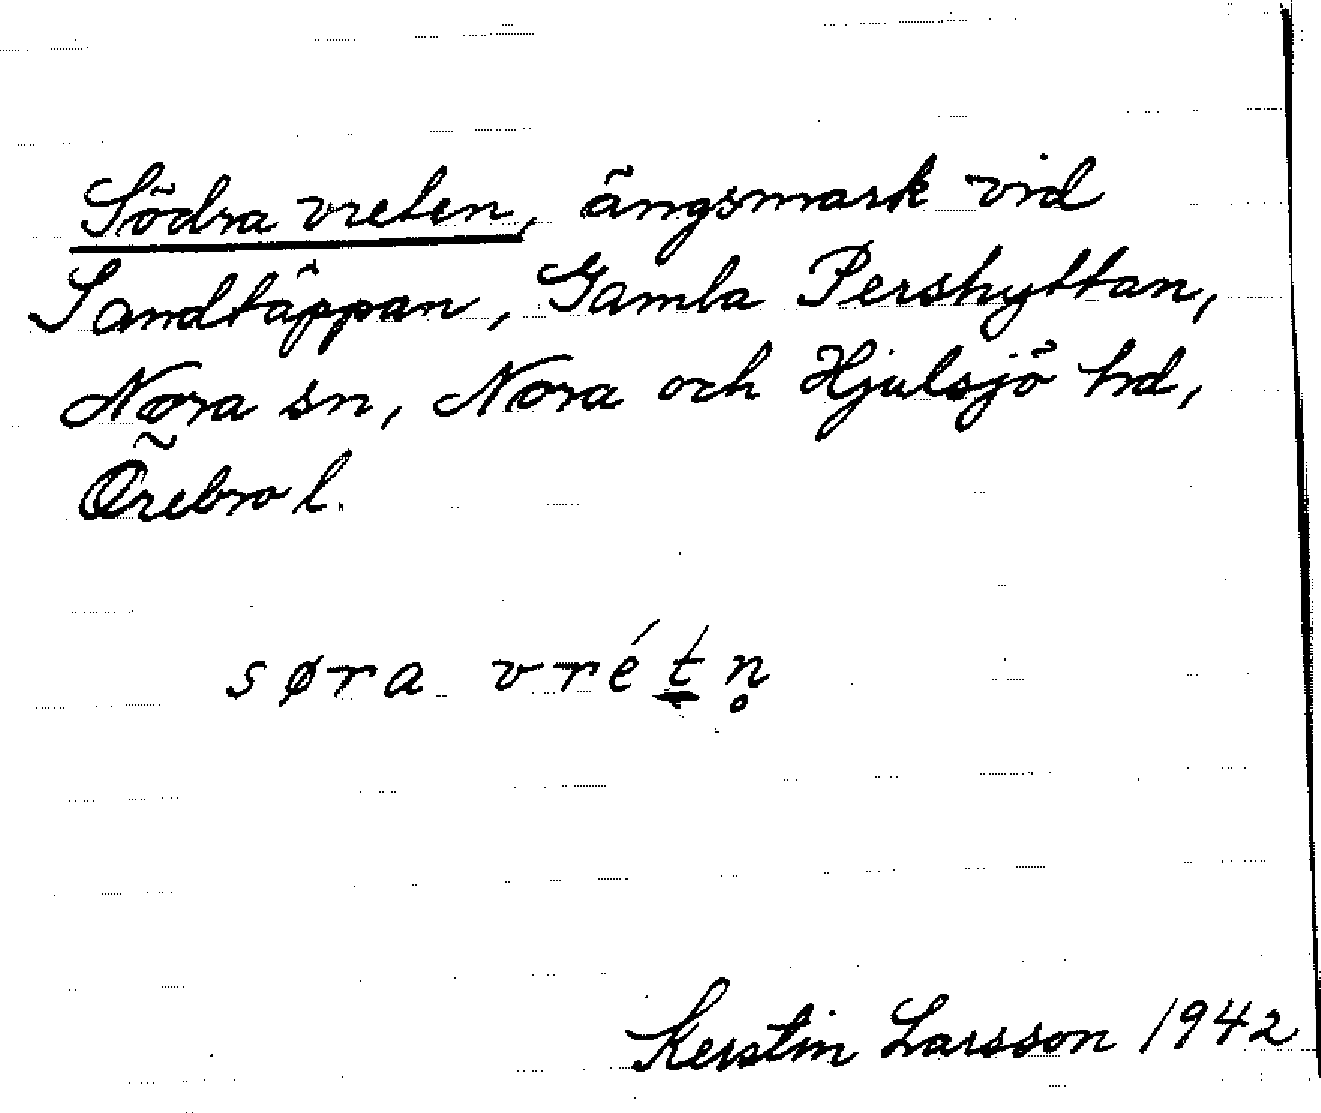 Södra vreten, ängsmark vid
Sandtäppan, Gamla Pershyttan,
Nora sn, Nora och Hjulsjö hd,
Örebro l.
søra vrét̠n̥
Kerstin Larsson 1942